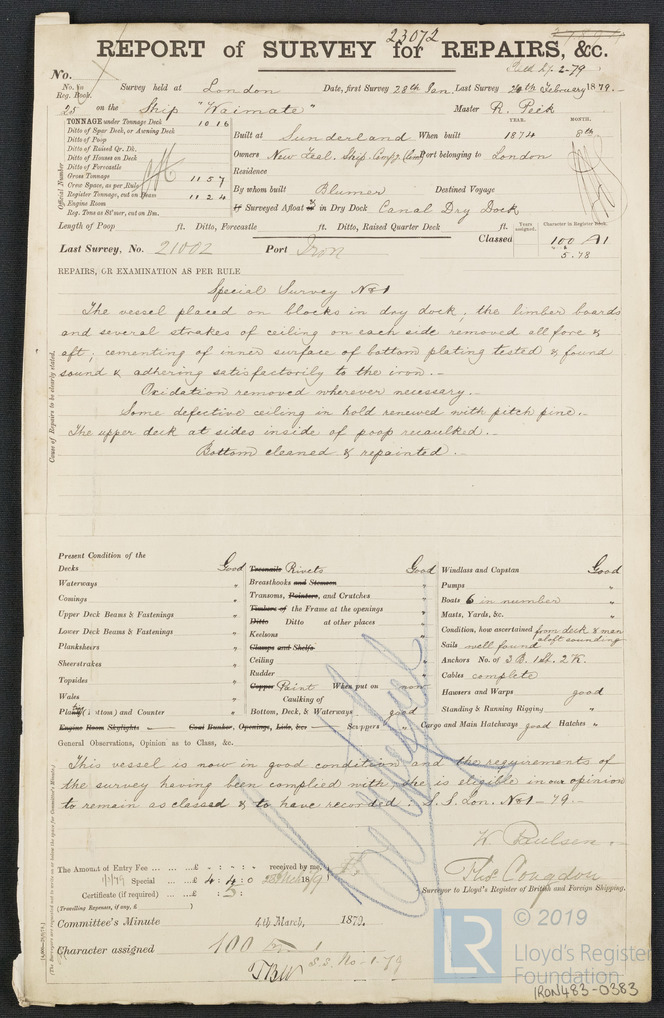 23072
REPORT of SURVEY for REPAIRS, &c.
No.
No. in Reg. Book. Survey held at London Date, first Survey 28th Jan. Last Survey 26th February 1879.
25 on the Ship "Waimate" Master R. Peck
TONNAGE under Tonnage Deck 1016
Ditto of Spar Deck, or Awning Deck
Ditto of Poop
Ditto of Raised Qr. Dk.
Ditto of Houses on Deck
Ditto of Forecastle
Gross Tonnage 1157
Crew Space, as per Rule
Register Tonnage, cut on Beam 1124
Engine Room
Reg. Tons as St'mer, cut on Bm.
Official Number
YEAR. MONTH.
Built at Sunderland When built 1874 8th
Owners New Zeal. Ship. Comp'y. Port belonging to London
Residence
By whom built Blumer Destined Voyage
If Surveyed Afloat or in Dry Dock Canal Dry Dock
Length of Poop ft. Ditto, Forecastle ft. Ditto, Raised Quarter Deck ft.
Years assigned. Character in Register Book.
Classed 100 A1
5.78
Last Survey, No. 21002 Port Iron
REPAIRS, OR EXAMINATION AS PER RULE
Special Survey No 1
The vessel placed on blocks in dry dock, the limber boards
and several strakes of ceiling on each side removed all fore &
aft, cementing of inner surface of bottom plating tested & found
sound & adhering satisfactorily to the iron. -
Oxidation removed wherever necessary. -
Some defective ceiling in hold renewed with pitch pine. -
The upper deck at sides inside of poop recaulked. -
Bottom cleaned & repainted. -
Cause of Repairs to be clearly stated.
Present Condition of the
Decks Good
Waterways "
Comings "
Upper Deck Beams & Fastenings "
Lower Deck Beams & Fastenings "
Planksheirs "
Sheerstrakes "
Topsides "
Wales "
Plating (bottom) and Counter "
Engine Room Skylights Coal Bunker, Openings, Lids, &c Scuppers
Treenails Rivets Good
Breasthooks and Stemson "
Transoms, Pointers, and Crutches "
Timbers of the Frame at the openings "
Ditto Ditto at other places "
Keelsons "
Clamps and Shelfs
Ceiling
Rudder
Copper Paint When put on now
Caulking of
Bottom, Deck, & Waterways good
Windlass and Capstan Good
Pumps "
Boats 6 in number "
Masts, Yards, &c. "
Condition, how ascertained from deck & man aloft sounding
Sails well found
Anchors No. of 3 B. 1 St. 2 K.
Cables complete
Hawsers and Warps good
Standing & Running Rigging "
Cargo and Main Hatchways good Hatches "
General Observations, Opinion as to Class, &c.
This vessel is now in good condition and the requirements of
the survey having been complied with, she is eligible in our opinion
to remain as classed & to have recorded: S. S. Lon. No 1 - 79. -
W. Paulsen.
Thos. Congdon
Surveyor to Lloyd's Register of British and Foreign Shipping.
The Amount of Entry Fee ... £ : : received by me,
Special ... £ 4 : 4 : 0
Certificate (if required) ... £
(Travelling Expenses, if any, £ )
Committee's Minute 4th March, 1879.
Character assigned 100 A 1
S.S. No-1-79
© 2019
LR
Lloyd's Register
Foundation
IRON483-0383